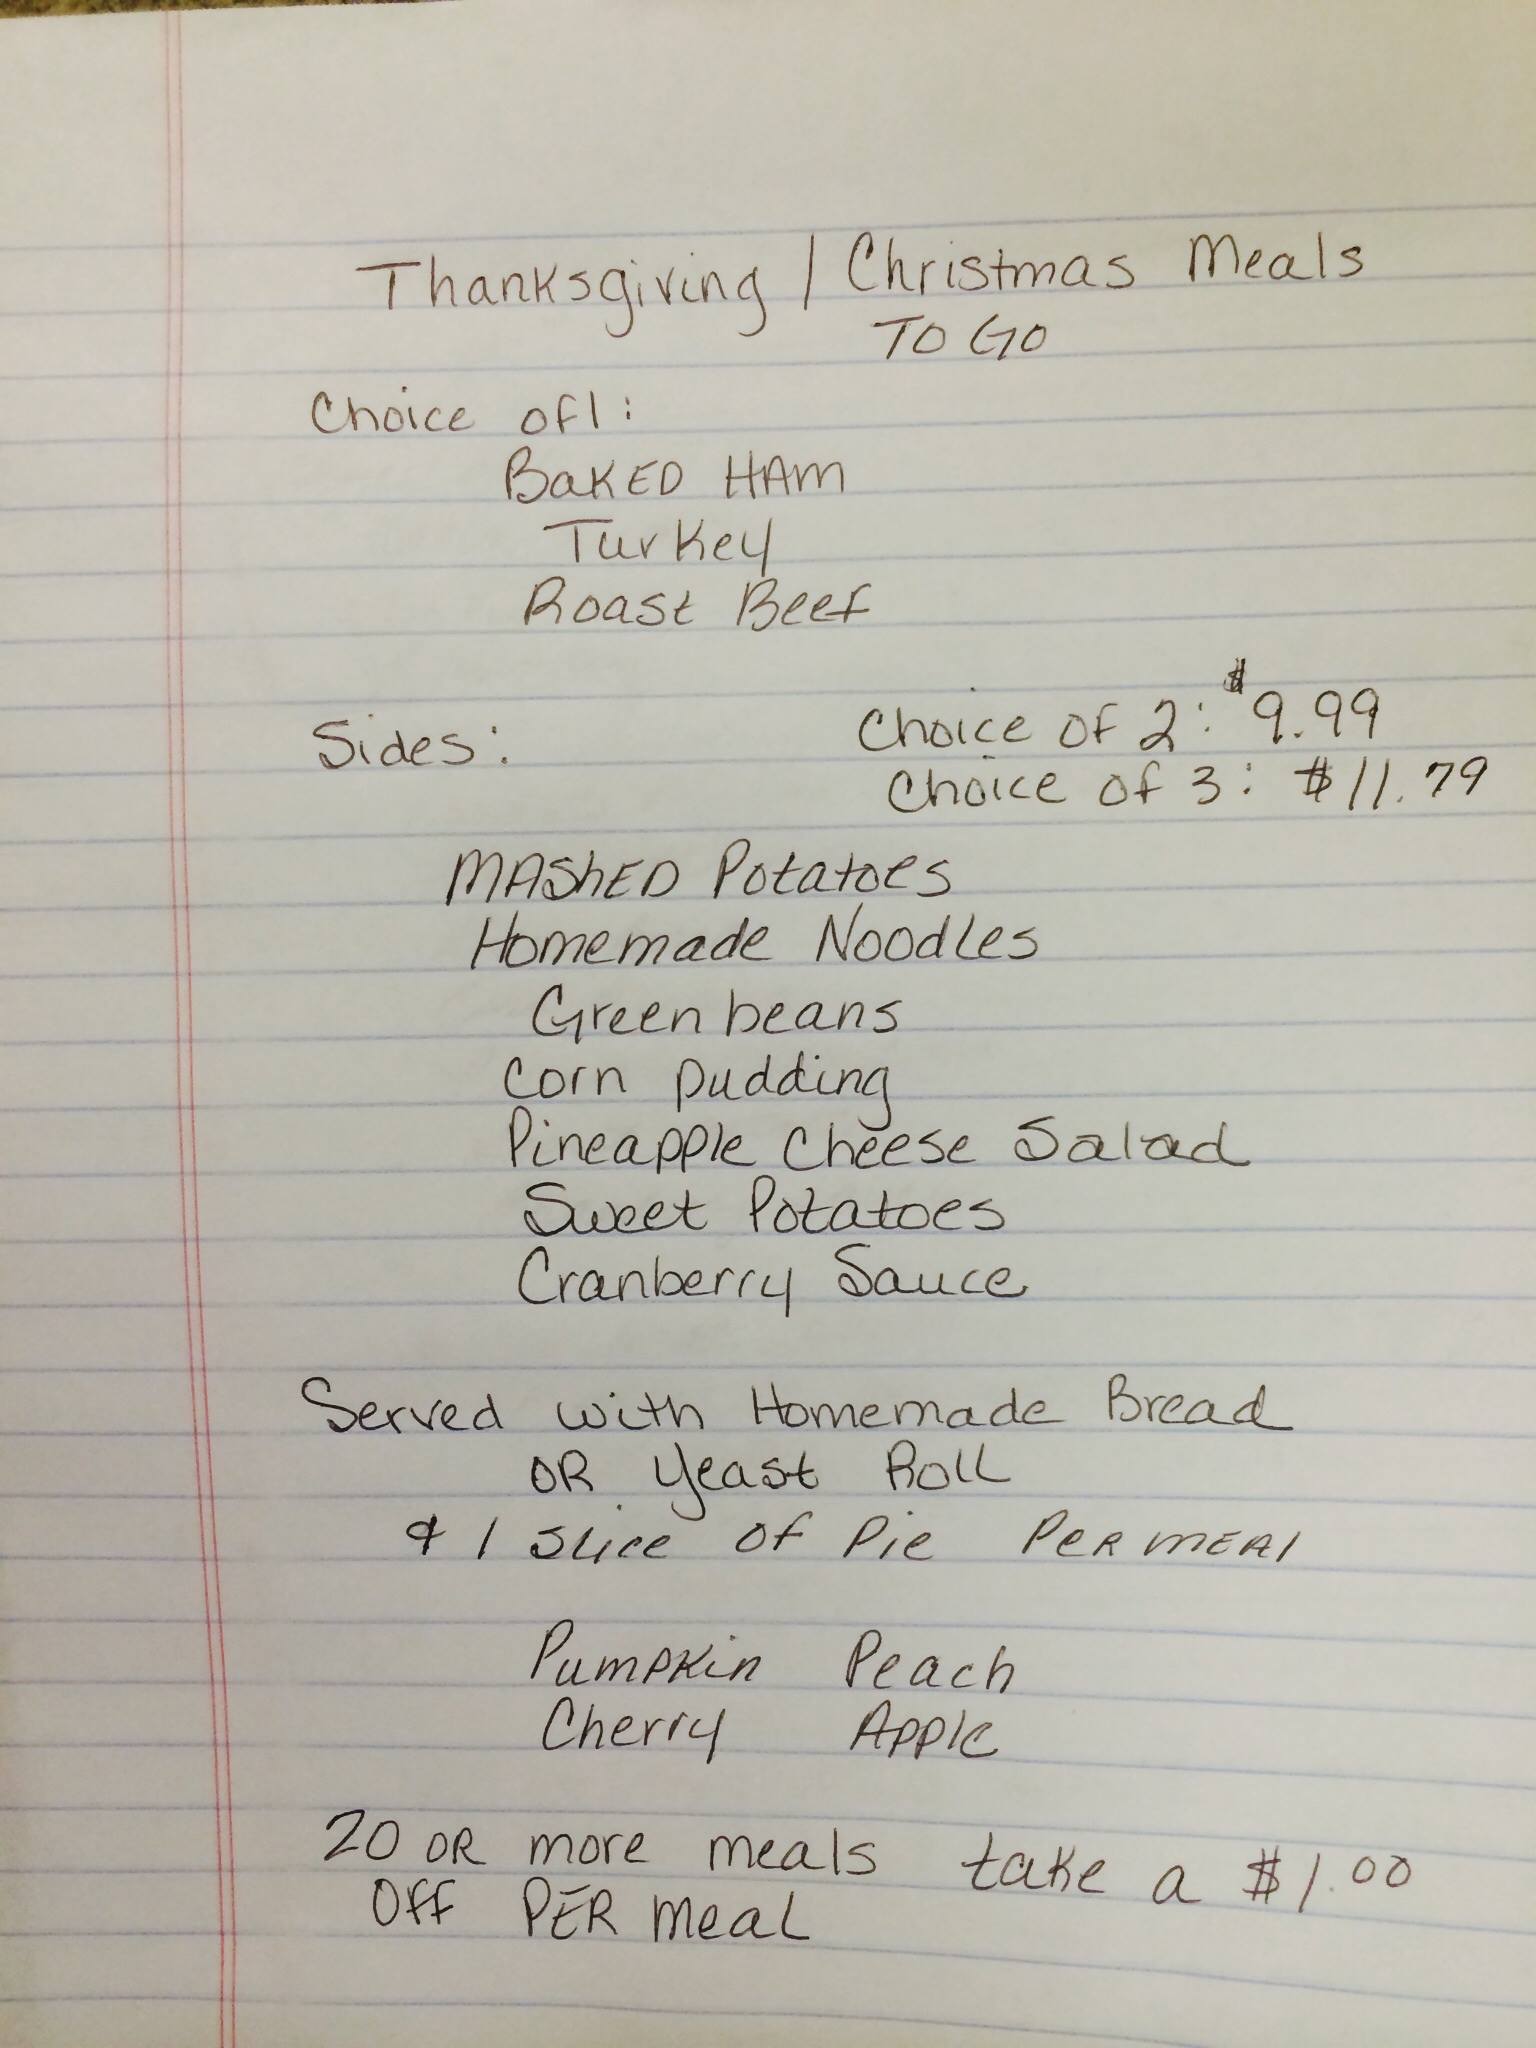 Thanksgiving / Christmas Meals
TO GO
Choice of 1:
BaKED HAM
Turkey
Roast Beef
Sides: Choice of 2: $9.99
Choice of 3: $11.79
MAShED Potatoes
Homemade Noodles
Green beans
Corn pudding
Pineapple Cheese Salad
Sweet Potatoes
Cranberry Sauce
Served with Homemade Bread
OR Yeast Roll
& 1 Slice of Pie PER MEAl
Pumpkin Peach
Cherry Apple
20 OR more meals take a $1.00
Off PER meaL